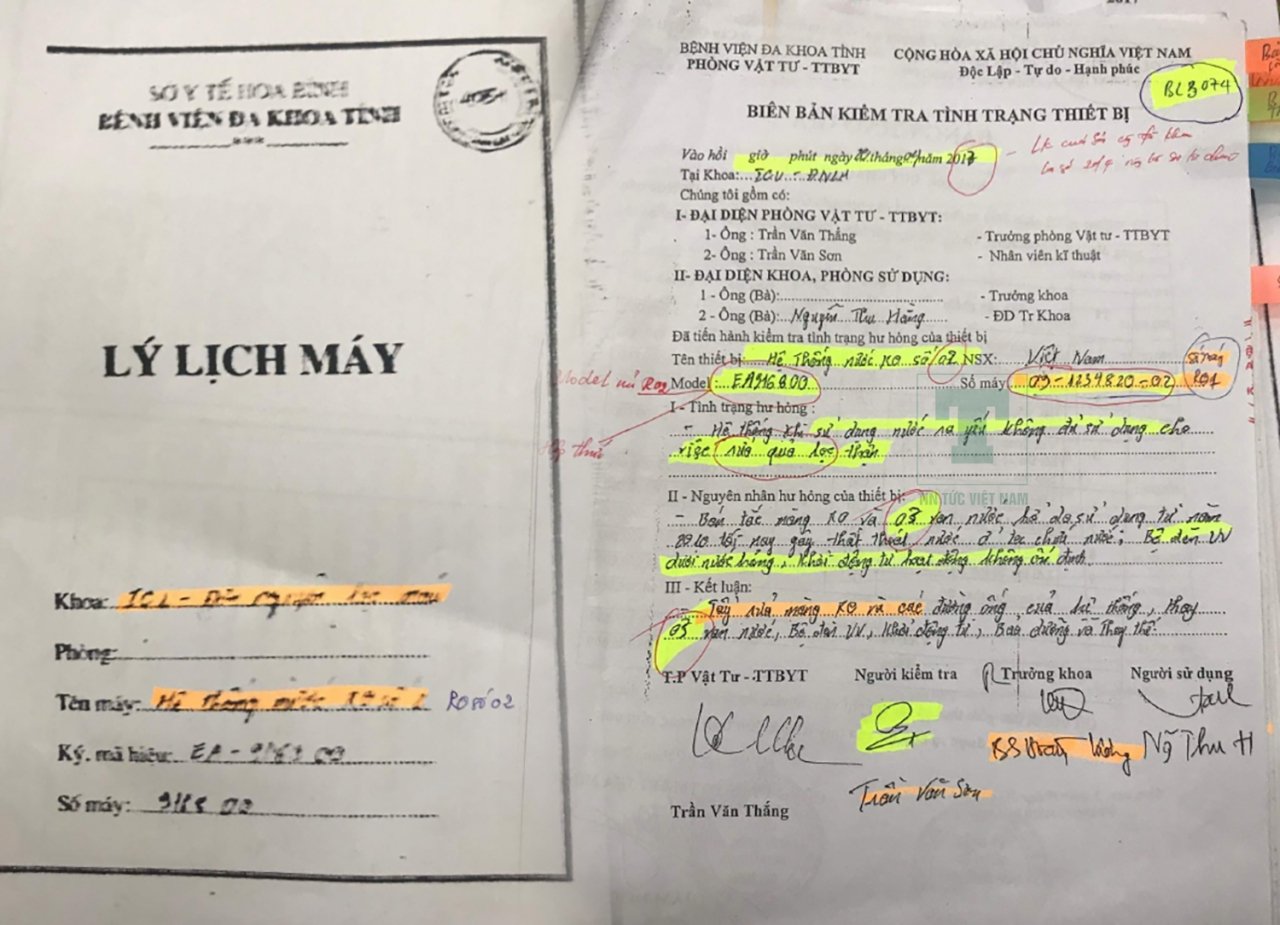 SỞ Y TẾ HOÀ BÌNH
BỆNH VIỆN ĐA KHOA TỈNH
LÝ LỊCH MÁY
Khoa: ICU - lọc máu
Phòng:
Tên máy: Hệ thống nước RO số 2 RO số 02
Ký, mã hiệu: EA - 9168 00
Số máy: 9168 00
BỆNH VIỆN ĐA KHOA TỈNH
PHÒNG VẬT TƯ - TTBYT
CỘNG HÒA XÃ HỘI CHỦ NGHĨA VIỆT NAM
Độc Lập - Tự do - Hạnh phúc
BL3074
BIÊN BẢN KIỂM TRA TÌNH TRẠNG THIẾT BỊ
Vào hồi giờ phút ngày tháng năm 2017
Tại Khoa: ICU - ĐNLM
Chúng tôi gồm có:
I- ĐẠI DIỆN PHÒNG VẬT TƯ - TTBYT:
1- Ông : Trần Văn Thắng - Trưởng phòng Vật tư - TTBYT
2- Ông : Trần Văn Sơn - Nhân viên kĩ thuật
II- ĐẠI DIỆN KHOA, PHÒNG SỬ DỤNG:
1 - Ông (Bà): - Trưởng khoa
2 - Ông (Bà): Nguyễn Thu Hằng - ĐD Tr Khoa
Đã tiến hành kiểm tra tình trạng hư hỏng của thiết bị
Tên thiết bị: Hệ thống nước RO số 02 NSX: Việt Nam
Số máy RO1
Model RO2
Model : EA916800 Số máy: 09-1239820-02
I - Tình trạng hư hỏng :
- Hệ thống khi sử dụng nước ra yếu không đủ sử dụng cho
việc rửa quả lọc thận
II - Nguyên nhân hư hỏng của thiết bị:
- Bán tắc màng RO và 03 van nước bị do sử dụng từ năm
2010 tới nay gây thất thoát nước ở tec chứa nước; Bộ đèn UV
dưới nước hỏng, khởi động từ hoạt động không ổn định
III - Kết luận:
- Tẩy rửa màng RO và các đường ống của hệ thống, thay
03 van nước, Bộ đèn UV, khởi động từ, Bảo dưỡng và thay thế.
TIN TỨC VIỆT NAM
T.P Vật Tư - TTBYT Người kiểm tra Trưởng khoa Người sử dụng
Trần Văn Sơn
Trần Văn Thắng